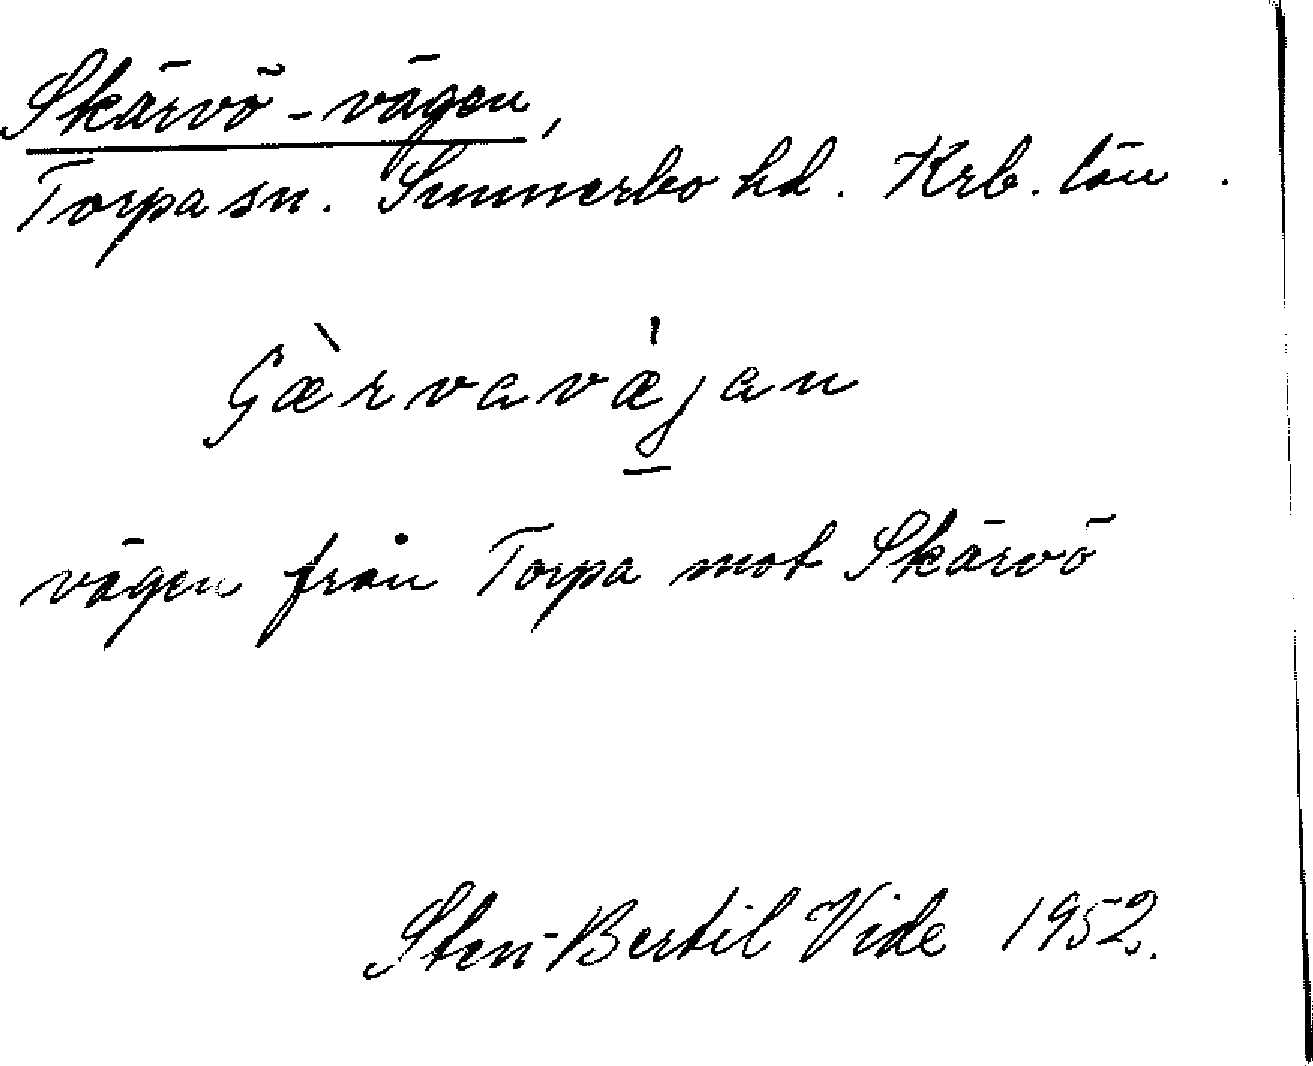 Skärvö-vägen,
Torpa sn. Sunnerbo hd. Krb. län.
Gæ̀rvavǽjan
vägen från Torpa mot Skärvö
Sten-Bertil Vide 1952.